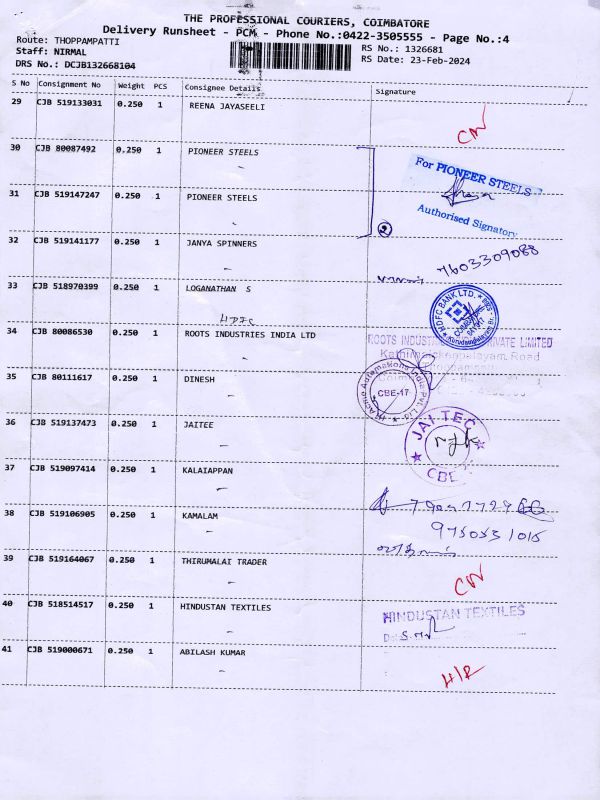 THE PROFESSIONAL COURIERS, COIMBATORE
Delivery Runsheet - PCM - Phone No.:0422-3505555 - Page No.:4
Route: THOPPAMPATTI
RS No.: 1326681
Staff: NIRMAL
RS Date: 23-Feb-2024
DRS No.: DCJB132668104
S No Consignment No Weight PCS Consignee Details Signature
29 CJB 519133031 0.250 1 REENA JAYASEELI
CN
30 CJB 80087492 0.250 1 PIONEER STEELS
For PIONEER STEELS
31 CJB 519147247 0.250 1 PIONEER STEELS
Authorised Signatory
2
32 CJB 519141177 0.250 1 JANYA SPINNERS
7603309088
33 CJB 518970399 0.250 1 LOGANATHAN S
HDFC
HDFC BANK LTD.
34 CJB 80086530 0.250 1 ROOTS INDUSTRIES INDIA LTD
ROOTS INDUSTRIES PRIVATE LIMITED
Road
35 CJB 80111617 0.250 1 DINESH
CBE-17
36 CJB 519137473 0.250 1 JAITEE
JAI TEC
CBE
37 CJB 519097414 0.250 1 KALAIAPPAN
38 CJB 519106905 0.250 1 KAMALAM
39 CJB 519164067 0.250 1 THIRUMALAI TRADER
CN
40 CJB 518514517 0.250 1 HINDUSTAN TEXTILES
HINDUSTAN TEXTILES
41 CJB 519000671 0.250 1 ABILASH KUMAR
H/R